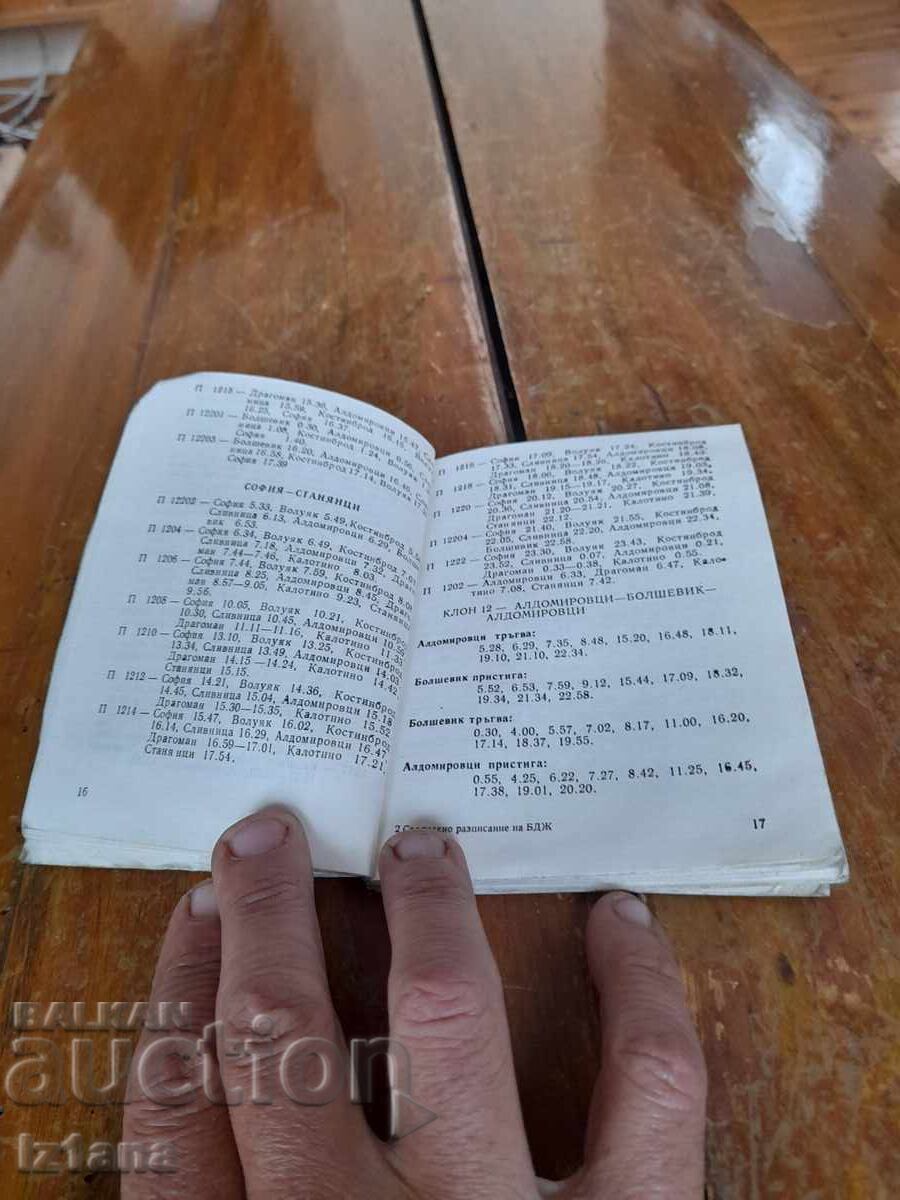 П 1215 — Драгоман 15.36, Алдомировци 15.47,
ница 15.59, Костинброд 16.15,
16.25, София 16.37
П 12201 — Болшевик 0.30, Алдомировци 0.56,
ница 1.08, Костинброд 1.24, Волуяк
София 1.40.
П 12203 — Болшевик 16.20, Алдомировци 16.46,
ница 16.58, Костинброд 17.14, Волуяк 17
София 17.39
СОФИЯ—СТАНЯНЦИ
П 12202 — София 5.33, Волуяк 5.49, Костинброд
Сливница 6.13, Алдомировци 6.29, Болше-
вик 6.53.
П 1204 — София 6.34, Волуяк 6.49, Костинброд 7.01,
Сливница 7.18, Алдомировци 7.35, Драго-
ман 7.44—7.46, Калотино 8.03
П 1206 — София 7.44, Волуяк 7.59, Костинброд 8.08,
Сливница 8.25, Алдомировци 8.45, Драго-
ман 8.57—9.05, Калотино 9.23, Станянци
9.56.
П 1208 — София 10.05, Волуяк 10.21, Костинброд
10.30, Сливница 10.45, Алдомировци 10.59
Драгоман 11.11—11.16, Калотино 11.33
П 1210 — София 13.10, Волуяк 13.25, Костинброд
13.34, Сливница 13.49, Алдомировци 14.03
Драгоман 14.15—14.24, Калотино 14.42,
Станянци 15.15.
П 1212 — София 14.21, Волуяк 14.36, Костинброд
14.45, Сливница 15.04, Алдомировци 15.18
Драгоман 15.30—15.35, Калотино 15.52
П 1214 — София 15.47, Волуяк 16.02, Костинброд
16.14, Сливница 16.29, Алдомировци 16.47
Драгоман 16.59—17.01, Калотино 17.21,
Станянци 17.54,
16
П 1216 — София 17.09, Волуяк 17.24, Костинброд
17.33, Сливница 17.54, Алдомировци 18.08,
Драгоман 18.20—18.26, Калотино 18.43.
П 1218 — София 18.06, Волуяк 18.22, Костинброд
18.31, Сливница 18.48, Алдомировци 19.05,
Драгоман 19.15—19.17, Калотино 19.34.
П 1220 — София 20.12, Волуяк 20.27, Костинброд
20.36, Сливница 20.54, Алдомировци 21.08,
Драгоман 21.20—21.21, Калотино 21.39,
Станянци 22.12.
П 12204 — София 21.40, Волуяк 21.55, Костинброд
22.05, Сливница 22.20, Алдомировци 22.34,
Болшевик 22.58.
П 1222 — София 23.30, Волуяк 23.43, Костинброд
23.52, Сливница 0.07, Алдомировци 0.21,
Драгоман 0.33—0.38, Калотино 0.55.
П 1202 — Алдомировци 6.33, Драгоман 6.47, Кало-
тино 7.08, Станянци 7.42.
КЛОН 12 — АЛДОМИРОВЦИ—БОЛШЕВИК—
АЛДОМИРОВЦИ
Алдомировци тръгва:
5.28, 6.29, 7.35, 8.48, 15.20, 16.48, 18.11,
19.10, 21.10, 22.34.
Болшевик пристига:
5.52, 6.53, 7.59, 9.12, 15.44, 17.09, 18.32,
19.34, 21.34, 22.58.
Болшевик тръгва:
0.30, 4.00, 5.57, 7.02, 8.17, 11.00, 16.20,
17.14, 18.37, 19.55.
Алдомировци пристига:
0.55, 4.25, 6.22, 7.27, 8.42, 11.25, 16.45,
17.38, 19.01, 20.20.
2 разписание на БДЖ
17
BALKAN
auction
iz1ana